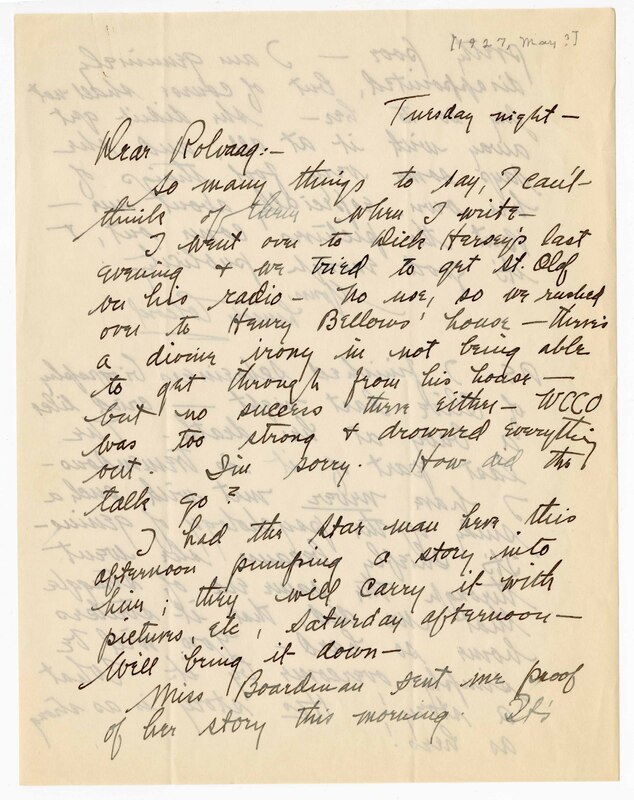 [1927, May?]
Tuesday night—
Dear Rolvaag:—
So many things to say, I can't
think of them when I write—
I went over to Dick Hersey's last
evening & we tried to get St. Olof
on his radio— No use, so we rushed
over to Henry Bellows' house — there's
a divine irony in not being able
to get through from his house —
but no success there either— WCCO
was too strong & drowned everything
out. I'm sorry. How did the
talk go?
I had the Star man here this
afternoon pumping a story into
him; they will carry it with
pictures, etc, Saturday afternoon—
Will bring it down—
Miss Boardman sent me proof
of her story this morning. It's